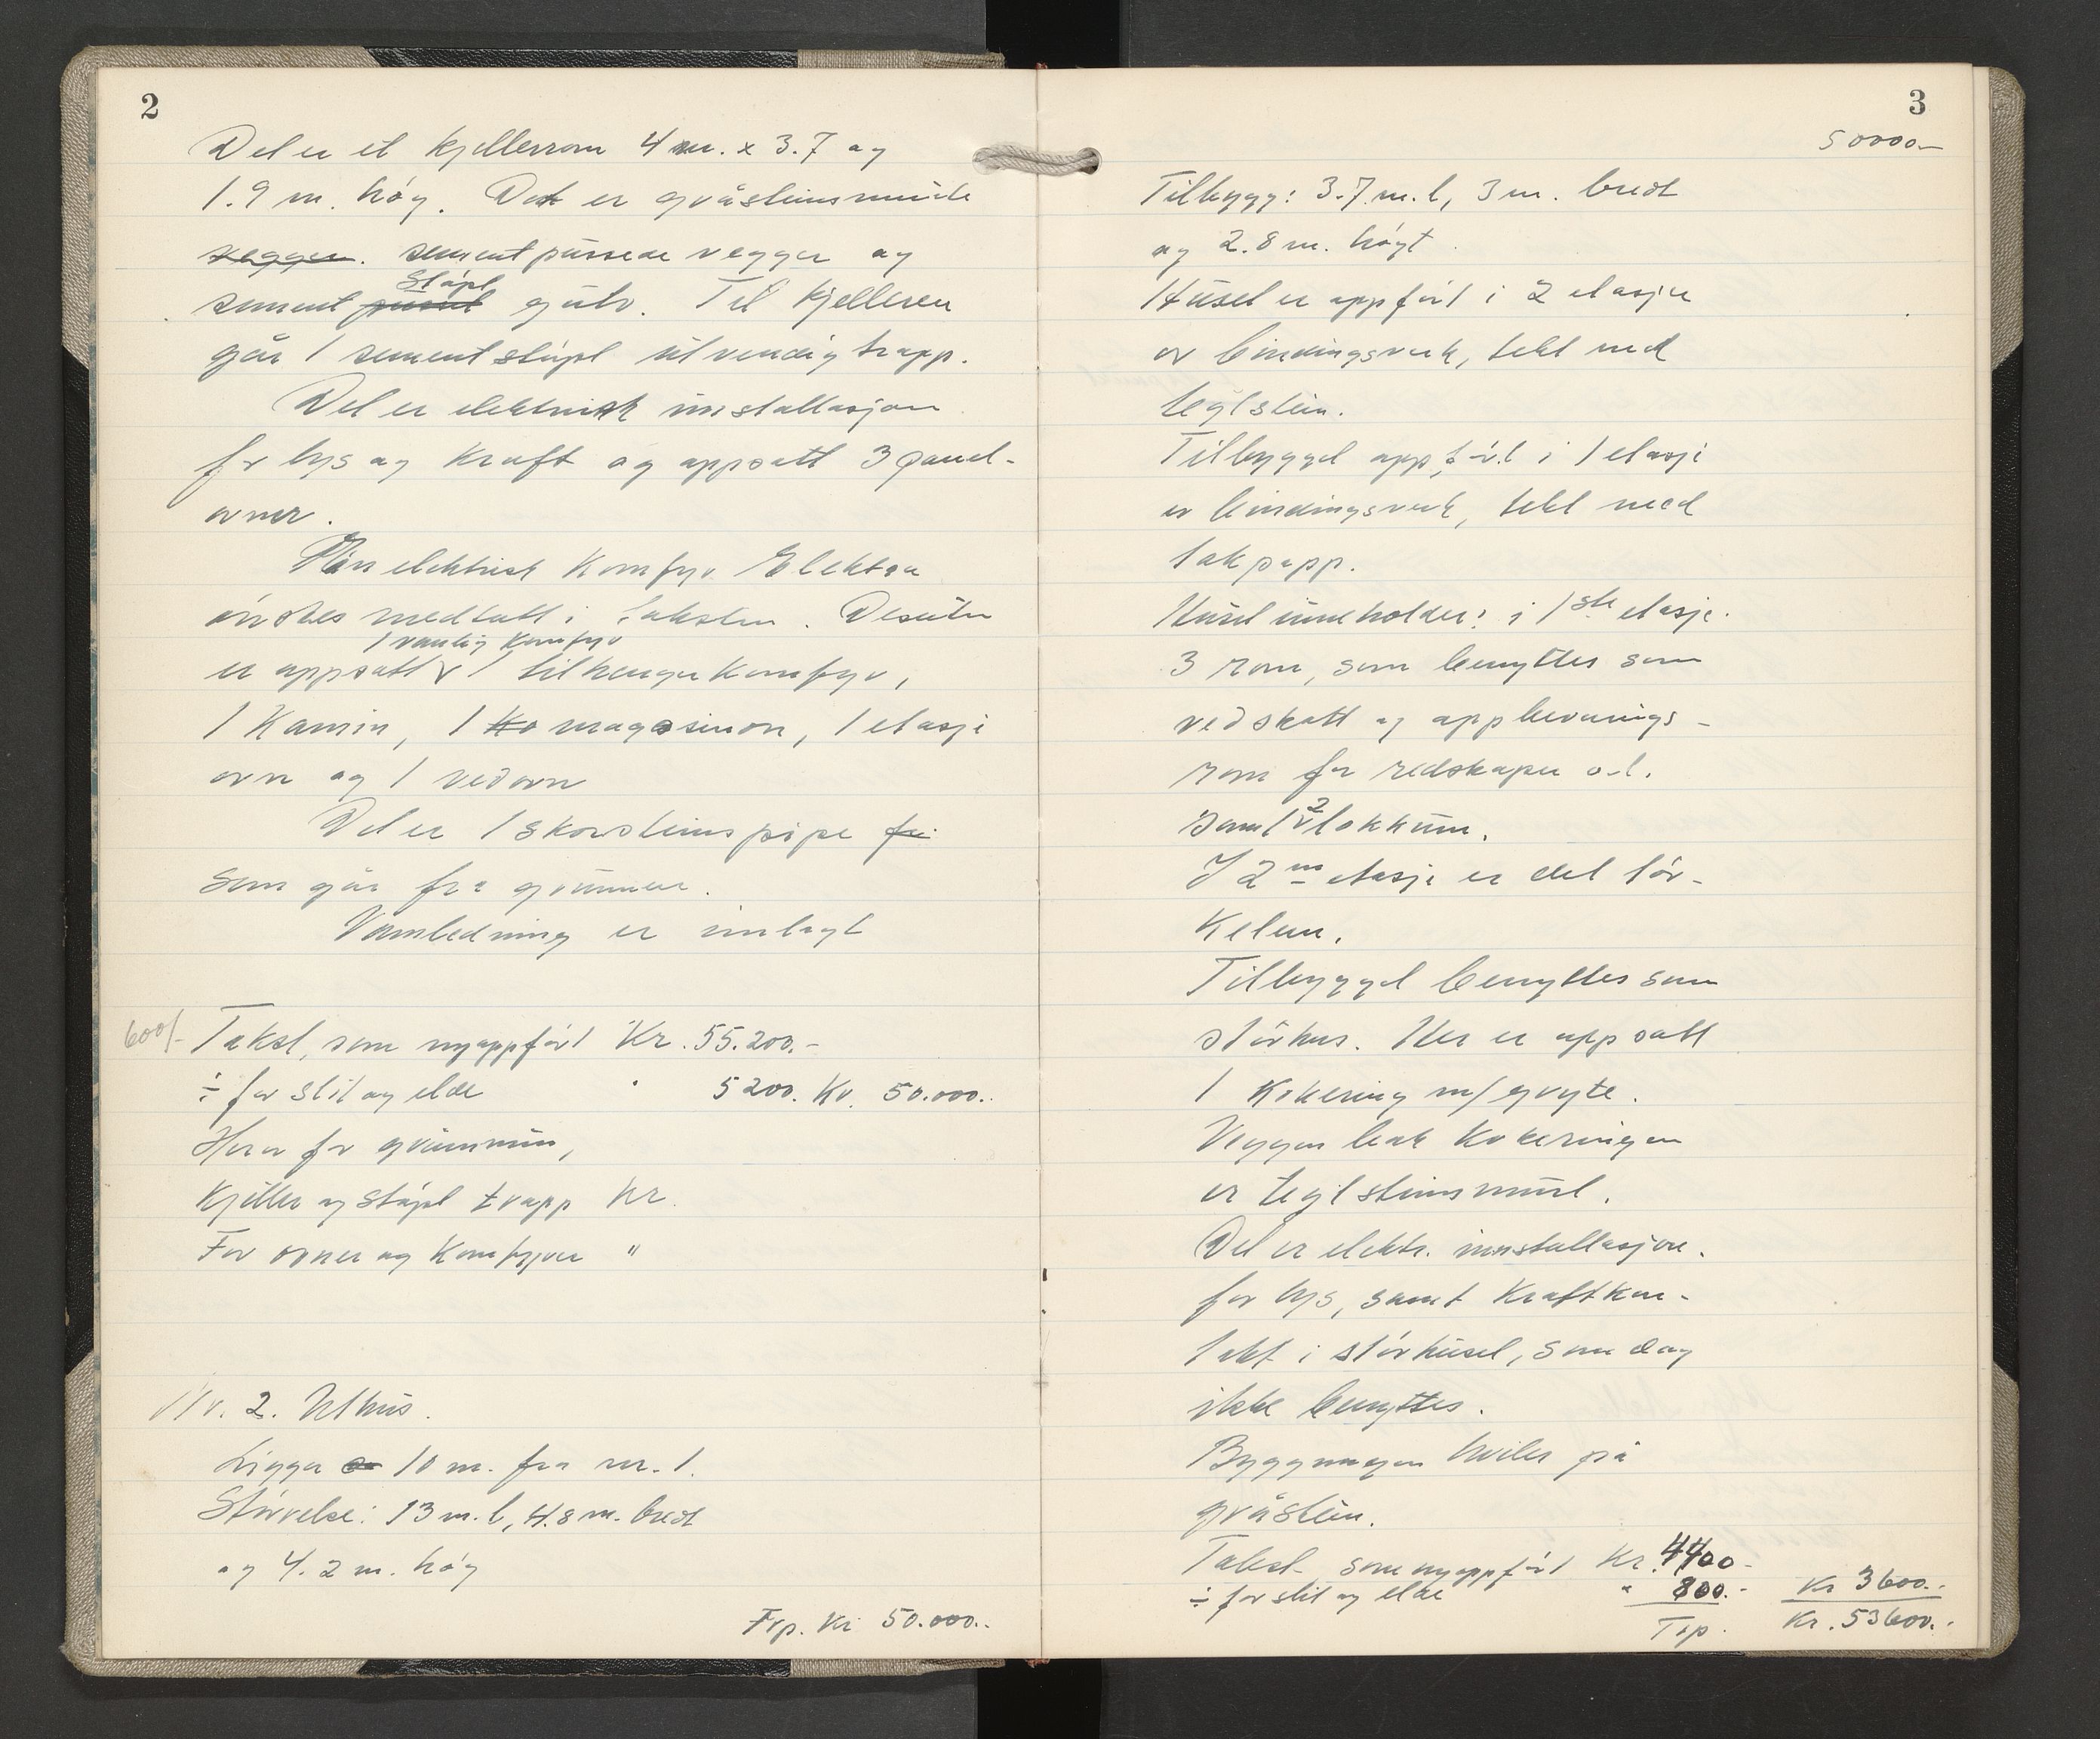 2
Det er et kjellerrom 4 m. x 3.7 og
1.9 m. høg. Det er gråsteinsmurte
vegger. sementpussede vegger og
Støpt
sement pusset gulv. Til kjelleren
går 1 sementstøpt utvendig trapp.
Det er elektrisk innstallasjon
for lys og kraft og oppsatt 3 panel-
ovner.
elektrisk Komfyr Elektra
ønskes medtatt i taksten. Desuten
1 vanlig Komfyr
er oppsatt 1 tilhenger Komfyr,
1 Kamin, 1 Ko magasinovn, 1 etasje
ovn og 1 vedovn
Det er 1 skorsteinspipe fr
som går fra grunnen.
Vannledning er innlagt
600/-
Takst, som nyoppført Kr. 55.200.-
÷ for slit og elde " 5200. Kr. 50.000..
Herav for grunnmur,
Kjeller og støpt trapp Kr.
For ovner og Komfyrer "
Nr. 2. Uthus.
Ligger 10 m. fra nr. 1.
Størrelse: 13 m. l, 4.8 m. bredt
og 4.2 m. høg
Trp. Kr 50.000..
3
50000-
Tilbygg: 3.7 m. l, 3 m. bredt
og 2.8 m. høgt.
Huset er oppført i 2 etasjer
av bindingsverk, tekt med
teglstein.
Tilbygget oppført i 1 etasje
av bindingsverk, tekt med
takpapp.
Huset inneholder: i 1ste etasje.
3 rom, som benyttes som
vedskott og oppbevarings-
rom for redskaper o.l.
2
samt lokkum.
I 2nn etasje er det tør-
Keloft.
Tilbygget benyttes som
størhus. Her er oppsatt
1 Kokering m/gryte.
Veggen bak Kokeringen
er teglsteinsmurt.
Det er elektr. innstallasjon.
for lys, samt Kraftkon-
takt i størhuset, som dog
ikke benyttes.
Byggningen hviler på
gråstein.
Takst som nyoppført Kr. 4400-
÷ for slit og elde " 800.- Kr 3600.-
Trp. Kr. 53600.-